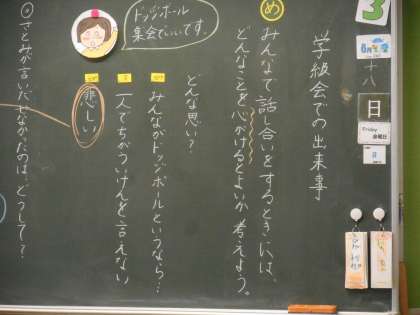 学級会での出来事
め
みんなで話し合いをするときには、
どんなことを心がけるとよいか考えよう。
ドッジボール
集会でいいです。
どんな思い?
みんながドッジボールというなら…
一人でちがういけんを言えない
悲しい
さとみが言いだせなかったのは、どうして?
3
十八
日
Friday
金曜日
日